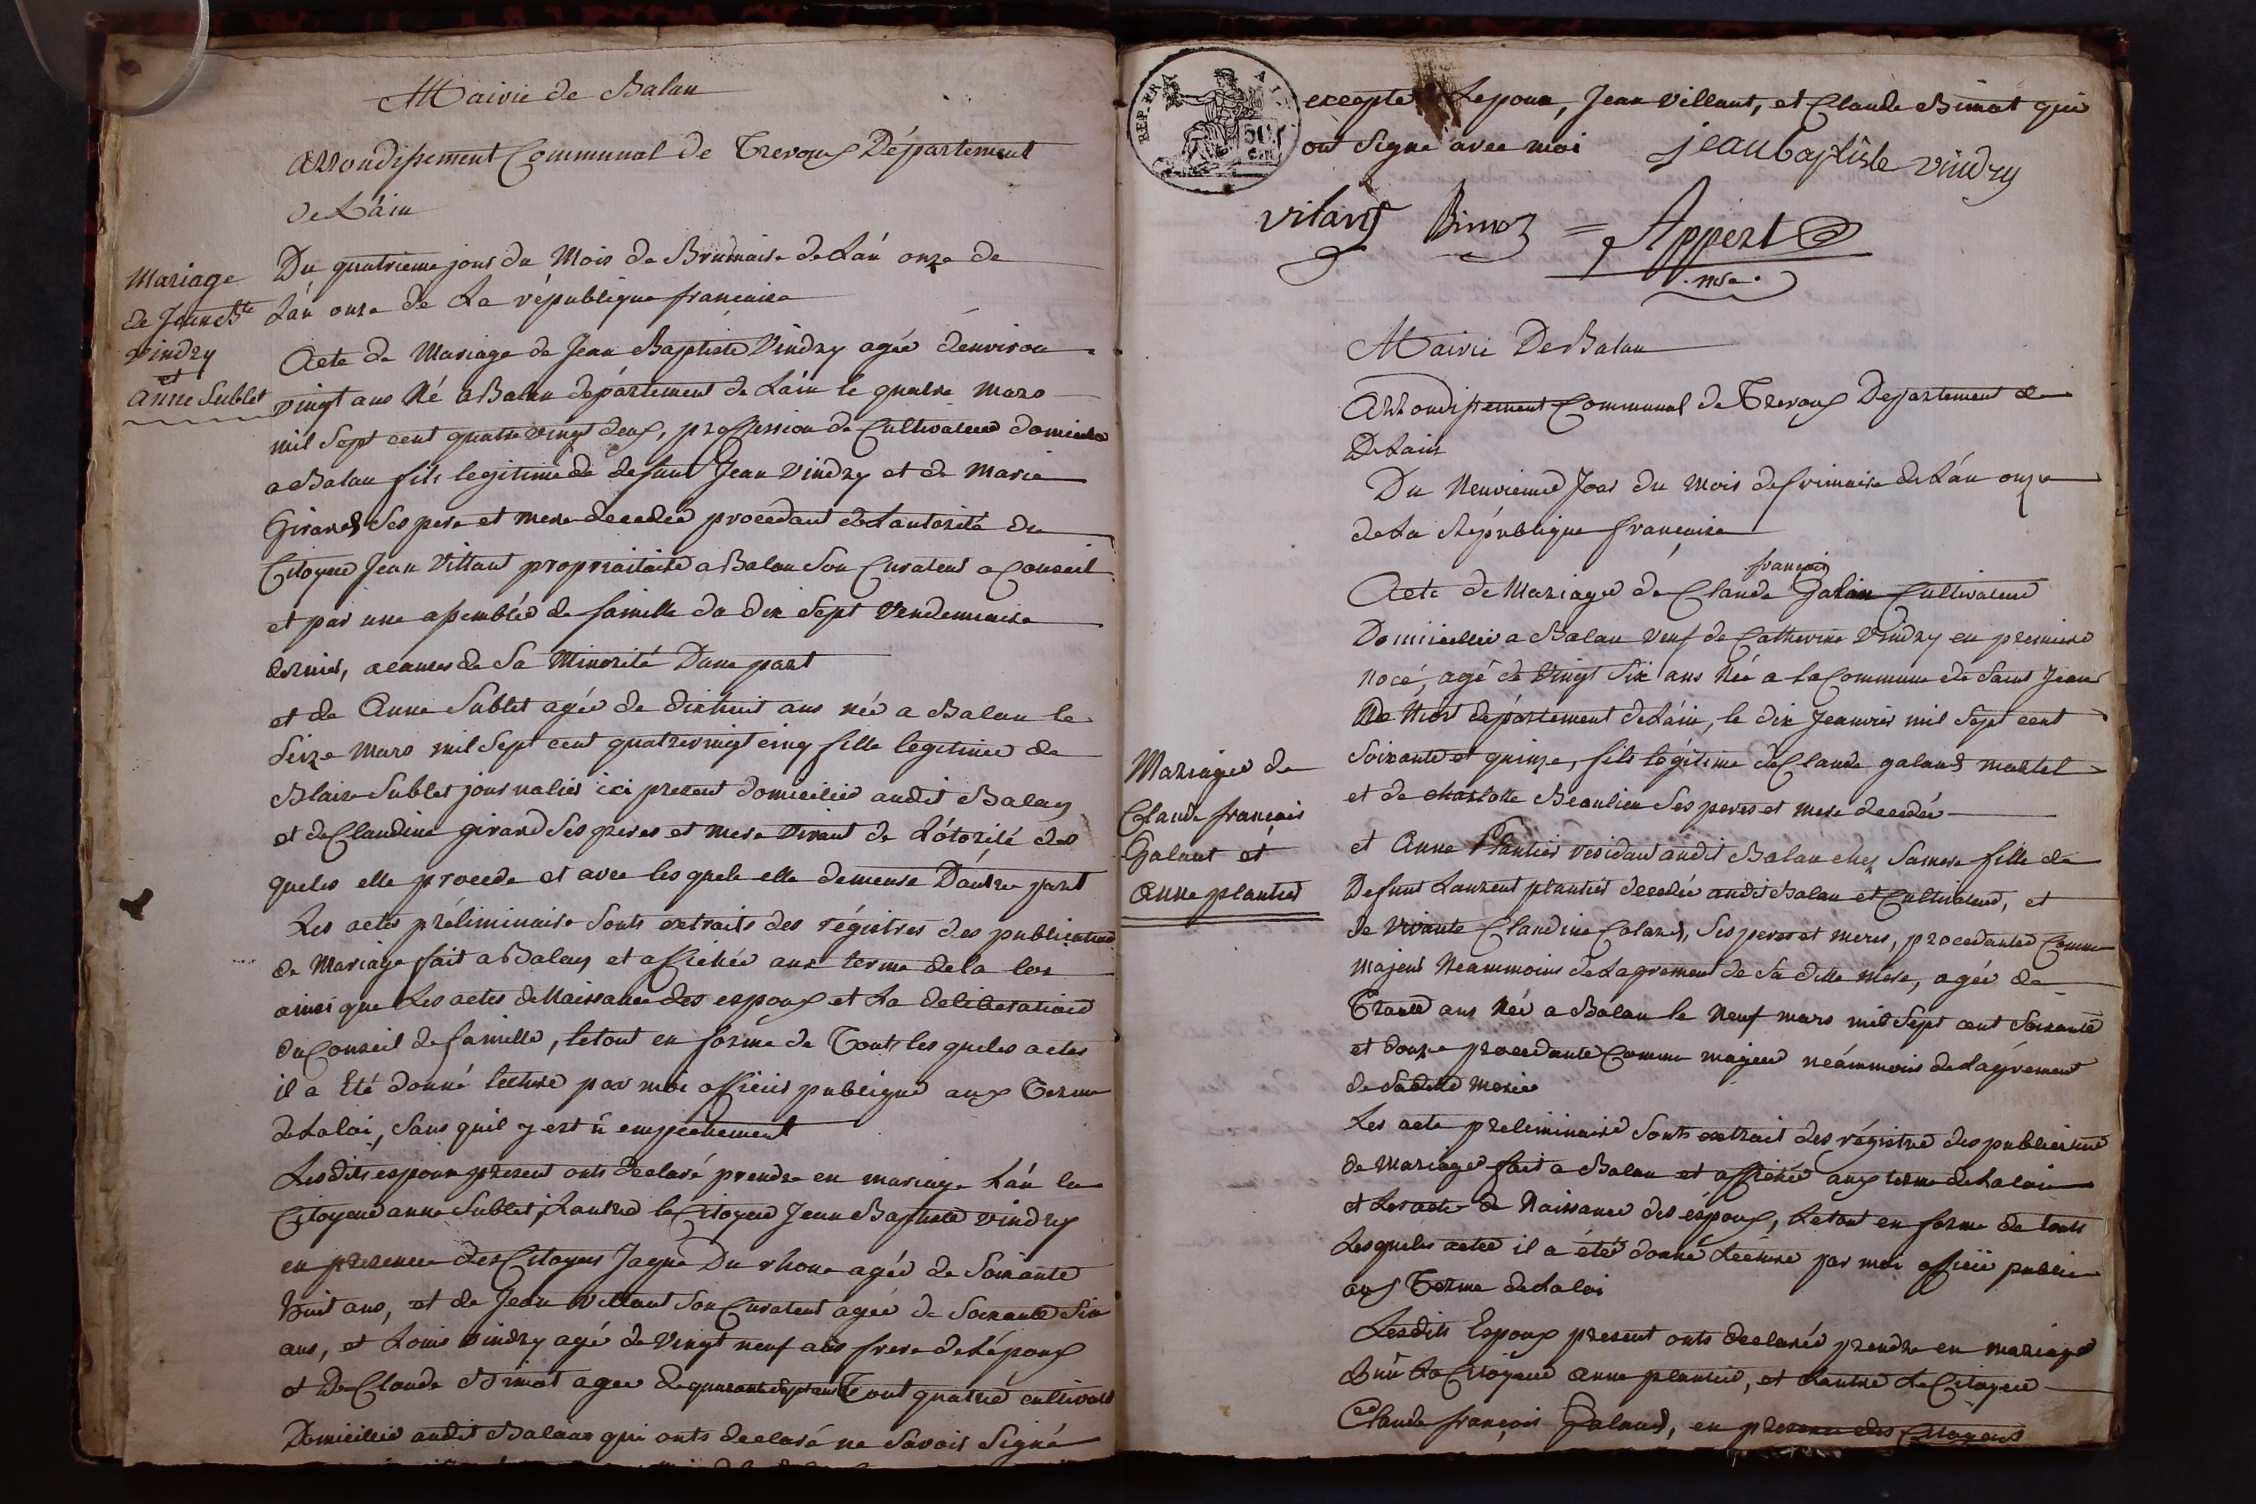 Mairie de Balan
Arrondissement Communal de Trevoux Département
de L'ain
Mariage
de Jean Bte
Vindry
et
anne Sublet
Du quatrieme jour du Mois de Brumaire de L'an onze de
L'an onze de La république francaise
Acte de Mariage de Jean Baptiste Vindry agée denviron
vingt ans Né a Balan département de L'ain le quatre Mars
mil Sept cent quatre vingt deux, proffession de Cultivateur domicilié
a Balan fils legitime de defunt Jean Vindry et de Marie
Girand Ses pere et mere decedée procedant de Lautorité du
Citoyen Jean Villaut propriaitaire a Balan Son Curateur a Conseil
et par une assemblée de famille du dix Sept Vendemiaire
dernier, acauses de Sa Minorité Dune part
et de Anne Sublet agée de dixhuit ans née a Balan le
Seize Mars mil Sept cent quatrevingt cinq fille legitime de
Blaise Sublet journalier ici present domicilié audit Balan
et de Claudine girand Ses peres et mere vivant de L'otorité des
queles elle procede et avec les quels elle demeure D'autre part
Les actes préliminaire Sonts extraits des régistres des publications
de Mariage fait a Balan et affichée aux terme dela loi
ainsi que Les actes de Naissance des espoux et La deliberation
du Conseil de famille, le tout en forme de Touts les queles actes
il a Eté donné lecture par moi officier publique aux Terme
de La loi, Sans quil y est ü empechement
Lesdits espoux present onts declaré prendre en mariage L'un la
Citoyene anne Sublet, Lautre le Citoyen Jean Baptiste Vindry
en presence des Citoyens Jaque Du rhone agée de Soixante
huit ans, et de Jean Villaut Son Curateur agée de Soixante Six
ans, et Louis Vindry agé de Vingt neuf ans frere de L'époux
et de Claude Bimot agee de quarante Sept ans Tout quatre cultivateur
Domicillié audit Balan qui onts declaré ne Savoir Signé
excepte Lepoux, Jean Villaut, et Claude Bimot qui
ont Signé avec moi jean baptiste vindry
vilant Bimot = Appert
mre
Mairie De Balan
Arrondissement Communal de Trevoux Departement de
De Lain
Du Neuvieme Jour du Mois de frimaire de L'an onze
de La République francaise
françois
Acte de Mariage de Claude Galan Cultivateur
Domicillié a Balan veuf de Catherine Vindry en premiere
nocé, agé de Vingt Six ans Née a la Commune de Saint Jean
De Niost département de L'ain, le dix Jeanvier mil Sept cent
Soixante et quinze, fils légitime de Claude galand martel
et de charlotte Beaulieu Ses peres et mere decedée
Mariage de
Claude francois
Galant et
Anne plantier
et Anne Plantier residant audit Balan chez Samere fille de
Defunt Laurent plantier decedée audit Balan et Cultivateur, et
de Vivante Claudine Coland, Ses peres et meres, procedante Comme
Majeur Neammoins de Lagrement de Sa ditte Mere, agée de
Trante ans Née a Balan le Neuf mars mil Sept cent Soixante
et douze procedante Comme majeur neámmoins de Lagrement
de Saditte mere
Les acte preliminaire Sonts extrait des régistre des publications
de Mariage fait a Balan et affichée aux terme de La loi
et Les acte de Naissance des époux, Le tout en forme de touts
Les queles actee il a été donné Lecture par moi officié public
aux Terme de La loi
Lesdits Espoux present onts declarée prendre en mariage
L'un La Citoyene anne plantier, et Lautre Le Citoyen
Claude françois Galand, en presence des Citoyens